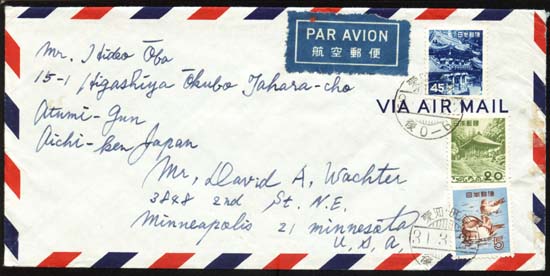 PAR AVION
航空郵便
日本郵便
45
Mr. Hideo Oba
15-1 Higashiya Okubo Tahara-cho
Atumi-Gun
Aichi-ken Japan
VIA AIR MAIL
後0-6
日本郵便
20
Mr. David A. Wachter
3848 2nd St. N.E.
Minneapolis 21 minnesota
U.S.A.
日本郵便
5
愛知
31.3
後